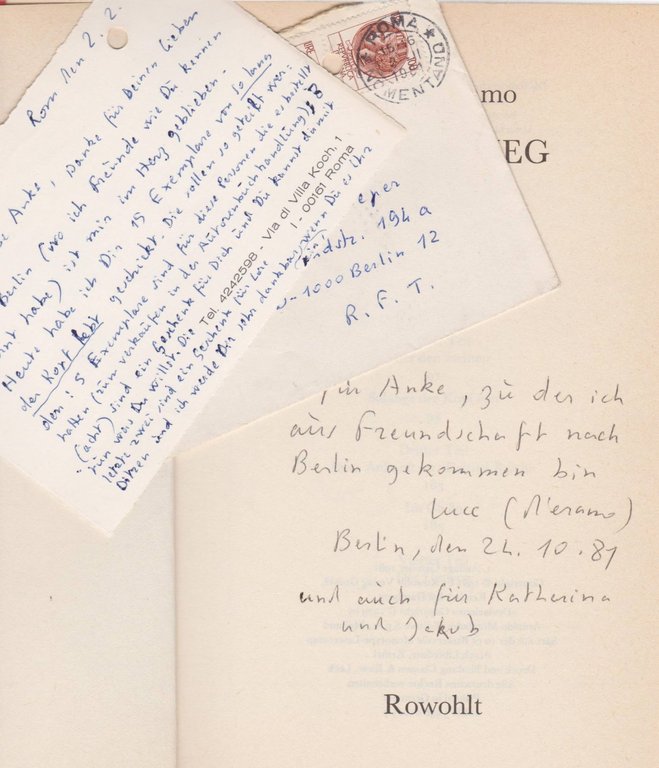 Rom den 2. 2.
Anke, Danke für Deinen lieben
Berlin (wo ich Freunde wie Du kennen
habe) ist mir im Herz geblieben.
Heute habe ich Dir 15 Exemplare von so lange
der Kopf lebt geschickt. Die sollen so geteilt wer-
den: 5 Exemplare sind für diese Personen die es bestellt
hatten (zum verkaufen in der Autorenbuchhandlung); 8
(acht) sind ein Geschenk für Dich und Du kannst damit
tun was Du willst. Die
letzte zwei sind ein Geschenk für Lore
Ditzen und ich werde Dir sehr dankbar, wenn Du es ihr
Tel. 4242598 - Via di Villa Koch, 1
I - 00161 Roma
ROMA
NOMENTANO
mo
EG
194 a
1000 Berlin 12
R. F. T.
für Anke, zu der ich
aus Freundschaft nach
Berlin gekommen bin
Luce (d'Eramo)
Berlin, den 24. 10. 81
und auch für Katherina
und Jakob
Rowohlt